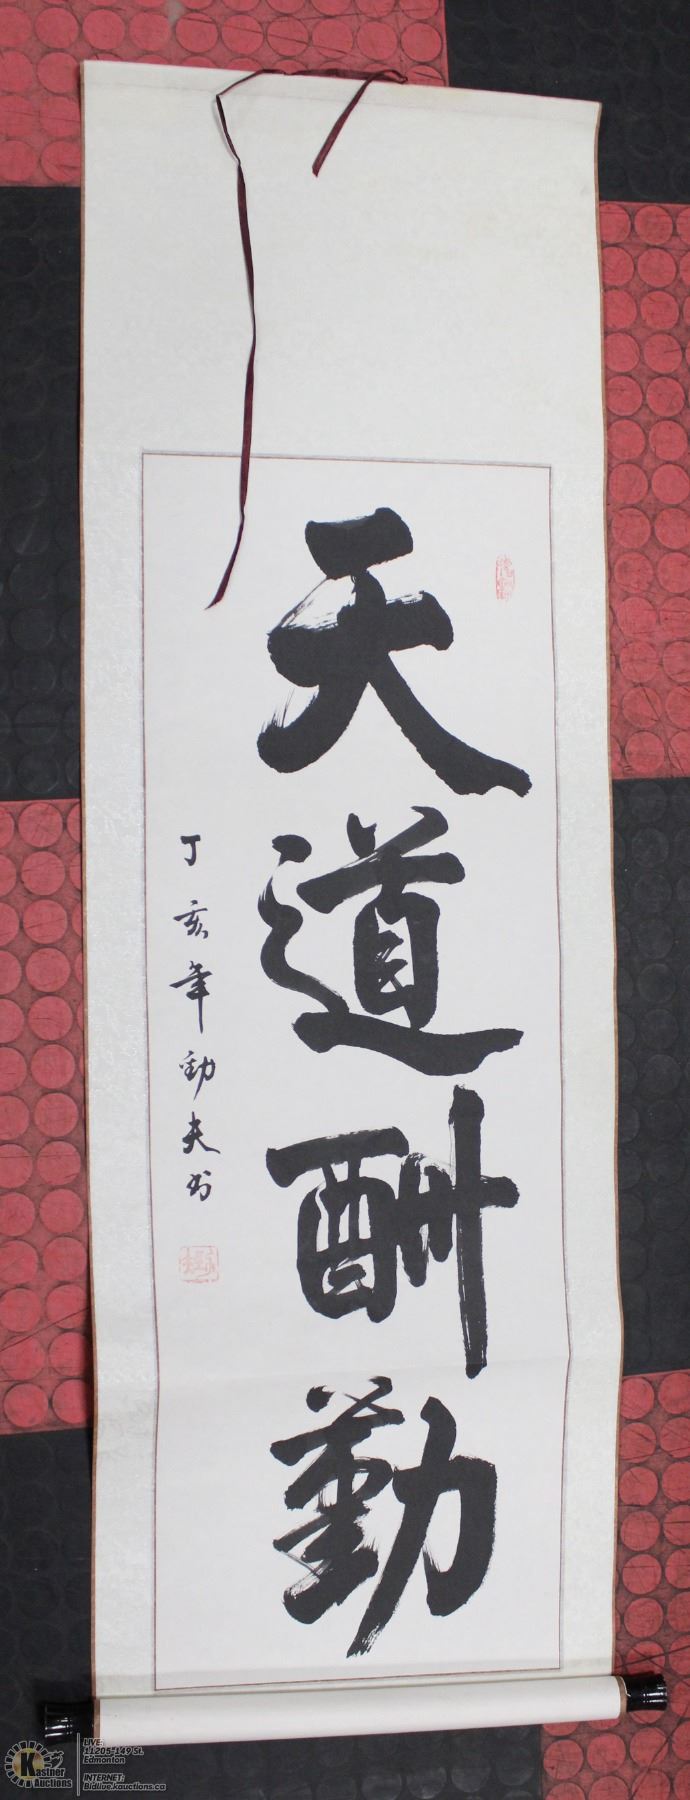 天道酬勤
丁亥年勤夫书
Kastner
Auctions
LIVE:
11205-149 St.
Edmonton
INTERNET:
Bidlive.kauctions.ca